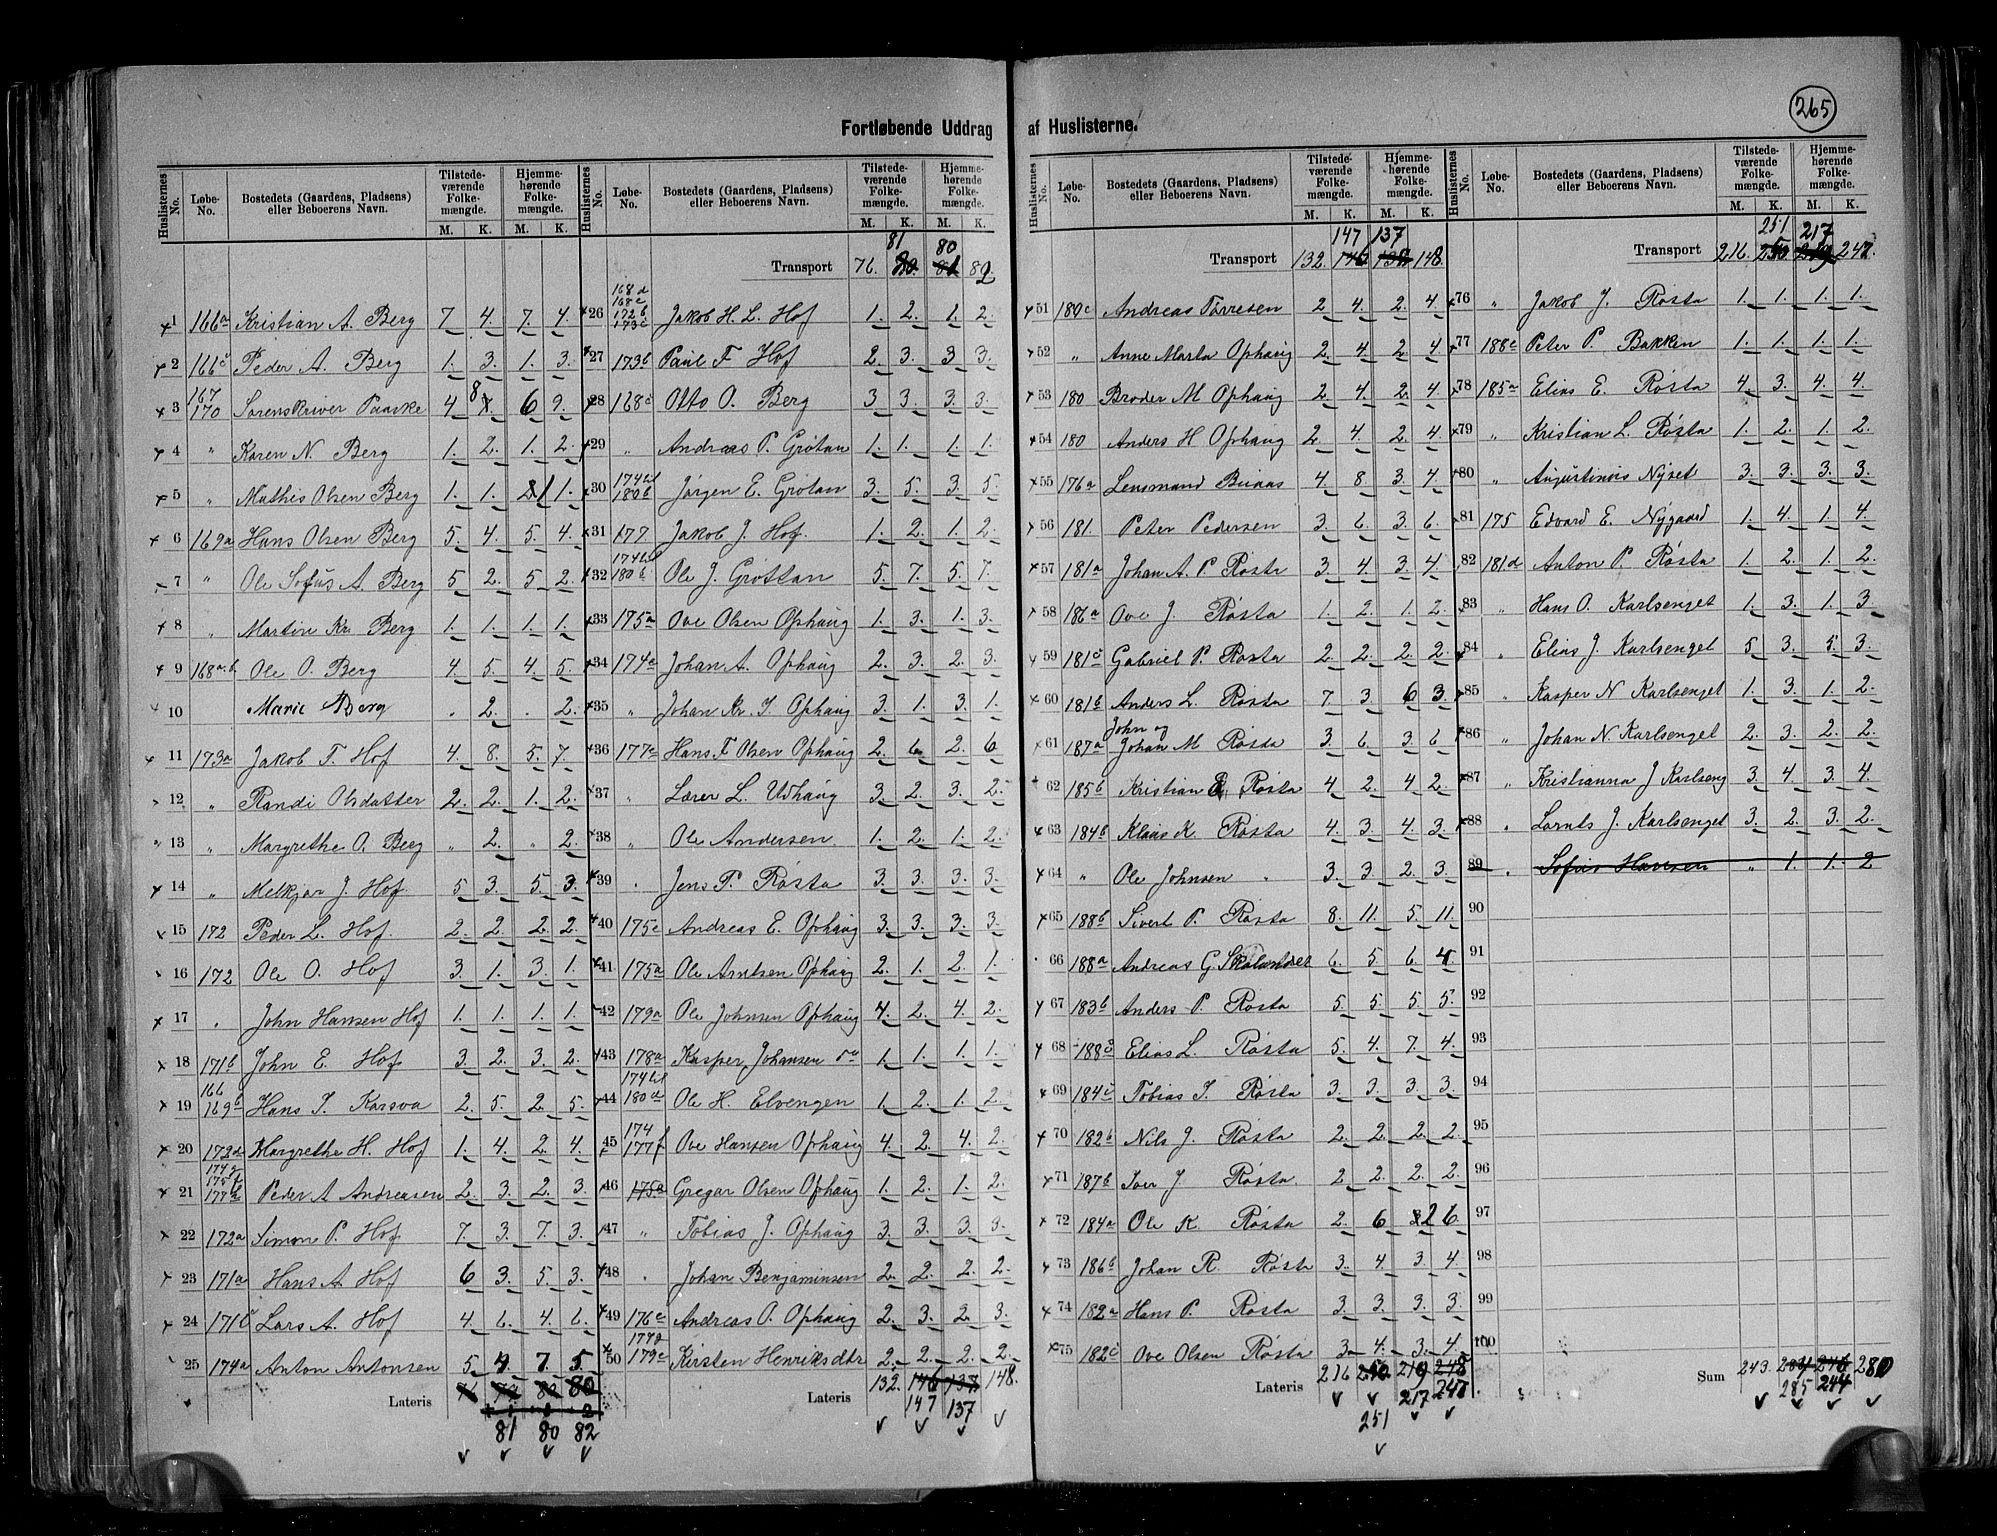 265
Fortløbende Uddrag af Huslisterne.
Huslisternes No. Løbe-No. Bostedets (Gaardens, Pladsens) eller Beboerens Navn. Tilstedeværende Folkemængde. M. K. Hjemmehørende Folkemængde. M. K.
1 166a Kristian A. Berg 7. 4. 7. 4.
2 166c Peder A. Berg 1. 3. 1. 3.
3 167 170 Sorenskriver Paaske 4 8 6 9.
4 " Karen N. Berg 1. 2. 1. 2.
5 " Mathis Olsen Berg 1. 1. 1 1.
6 169a Hans Olsen Berg 5. 4. 5. 4.
7 " Ole Sofus A. Berg 5 2. 5 2.
8 " Martin Kr. Berg 1. 1. 1. 1.
9 168a.b Ole O. Berg 4. 5. 4. 5.
10 Marie Berg . 2. . 2.
11 173a Jakob T. Hof 4. 8. 5. 7.
12 " Randi Olsdatter 2. 2. 1. 2.
13 " Margrethe O. Berg " 2. " 2.
14 " Melkjar J. Hof 5. 3. 5. 3.
15 172 Peder L. Hof. 2. 2. 2. 2.
16 172 Ole O. Hof 3. 1. 3. 1.
17 " John Hansen Hof 1. 1. 1. 1.
18 171b John E. Hof 3. 2. 3. 2.
19 166 169b Hans J. Karsva 2. 5. 2. 5.
20 172d Margrethe H. Hof 1. 4. 2. 4.
21 Peder A Andreasen 2. 3. 2. 3.
22 172a Simon P. Hof 7. 3. 7. 3.
23 171a Hans A. Hof 6 3. 5. 3.
24 171c Lars A. Hof 4. 6. 4. 6.
25 174a Anton Antonsen 5. 4. 7. 5.
Lateris 76 79 80 80
81 80 82
Transport 76. 81 80 82
26 168d 168e 172b 173c Jakob H. L. Hof 1. 2. 1. 2.
27 173b Paul F Hof 2. 3. 3 3.
28 168c Otto O. Berg 3 3. 3. 3.
29 " Andreas P. Grøtan 1. 1. 1. 1.
30 180b Jørgen E. Grotan 3. 5. 3. 5.
31 177 Jakob J. Hof. 1. 2. 1. 2.
32 180b Ole J. Grøttan 5. 7. 5. 7.
33 175a Ove Olsen Ophaug 1. 3. 1. 3.
34 174c Johan A. Ophaug 2. 3. 2. 3.
35 " Johan Kr. J. Ophaug 3. 1. 3. 1.
36 177c Hans F Olsen Ophaug 2. 6. 2. 6
37 " Lærer L. Udhaug 3. 2. 3. 2.
38 " Ole Andersen. 1. 2. 1. 2.
39 " Jens P. Røsta 3. 3. 3. 3.
40 175c Andreas E. Ophaug 3. 3. 3. 3.
41 175a Ole Arntsen Ophaug 2. 1. 2. 1.
42 179a Ole Johnsen Ophaug 4. 2. 4. 2.
43 178a Kasper Johansen do 1. 1. 1. 1.
44 180d Ole H. Elvengen 1. 2. 1. 2.
45 174 177f Ove Hansen Ophaug 4. 2. 4. 2.
46 175a Gregar Olsen Ophaug 1. 2. 1. 2.
47 " Tobias J. Ophaug 3. 3. 3. 3.
48 " Johan Benjaminsen 2. 2. 2. 2.
49 176c Andreas O. Ophaug 2. 3. 2. 3.
50 177g 179c Kirsten Henriksdtr. 2. 2. 2. 2.
Lateris 132. 146 137 148.
147 137
Huslisternes No. Løbe-No. Bostedets (Gaardens, Pladsens) eller Beboerens Navn. Tilstedeværende Folkemængde. M. K. Hjemmehørende Folkemængde. M. K.
Transport 132 147 137 148.
51 189c Andreas Tørresen 2 4. 2. 4.
52 " Anne Marta Ophaug 2. 4. 2. 4.
53 180 Broder M Ophaug 2 4. 2. 4.
54 180 Anders H Ophaug 2. 4. 2 4.
55 176a Lensmand Buaas 4 8. 3. 4.
56 181. Peter Pedersen 3. 6. 3. 6.
57 181a Johan A. P Røsta 3. 4. 3 4.
58 186a Ove J. Røsta 1. 2. 1. 2.
59 181c Gabriel P. Røsta 2. 2. 2. 2.
60 181b Anders L. Røsta 7. 3. 6 3.
61 187a John og Johan M Røsta 3. 6. 3. 6
62 185b Kristian Røsta 4 2. 4 2.
63 184b Klaus K. Røsta 4. 3. 4. 3
64 " Ole Johnsen " 3. 3. 2. 3.
65 188b Sivert P. Røsta 8. 11. 5. 11.
66 188a Andreas G. Skølandser 6. 5. 6. 4.
67 183b Anders P. Røsta 5. 5. 5. 5.
68 188c Elias L. Røsta 5. 4. 7. 4.
69 184c Tobias J. Røsta 3. 3. 3. 3.
70 182b Nils J. Røsta 2. 2. 2. 2.
71 187b Iver J. Røsta. 2. 2. 2. 2.
72 184a Ole K. Røsta 2. 6 2 6.
73 186b Johan R. Røsta 3. 4. 3. 4.
74 182a Hans P. Røsta 3. 3. 3. 3.
75 182c Ove Olsen Røsta 3. 4. 3. 4.
Lateris 216 250 219 248
217 247
251
Transport 216. 251 217 247.
76 " Jakob J. Røsta 1. 1. 1. 1.
77 188c Peter P. Bakken 1. 1. 1. 1.
78 185a Elias E. Røsta 4. 3. 4. 4.
79 " Kristian L. Røsta 1. 2. 1. 2.
80 " Augustinus Nyset 3. 3. 3. 3.
81 175 Edvard E. Nygaard 1. 4. 1. 4.
82 181d Anton P. Røsta 1. 2. 1. 2.
83 " Hans O. Karlsenget 1. 3. 1. 3
84 " Elias J. Karlsenget 5. 3. 5. 3.
85 " Kasper N. Karlsenget 1. 3. 1. 2.
86 " Johan N. Karlsenget 2. 3. 2. 2.
87 " Kristianna J Karlseng 3. 4. 3. 4.
88 " Lornts J. Karlsenget 3. 2. 3. 2.
89 " Sofus Hansen " 1. 1. 2
90
91
92
93
94
95
96
97
98
99
100
Sum 243. 284 246 280
285 244